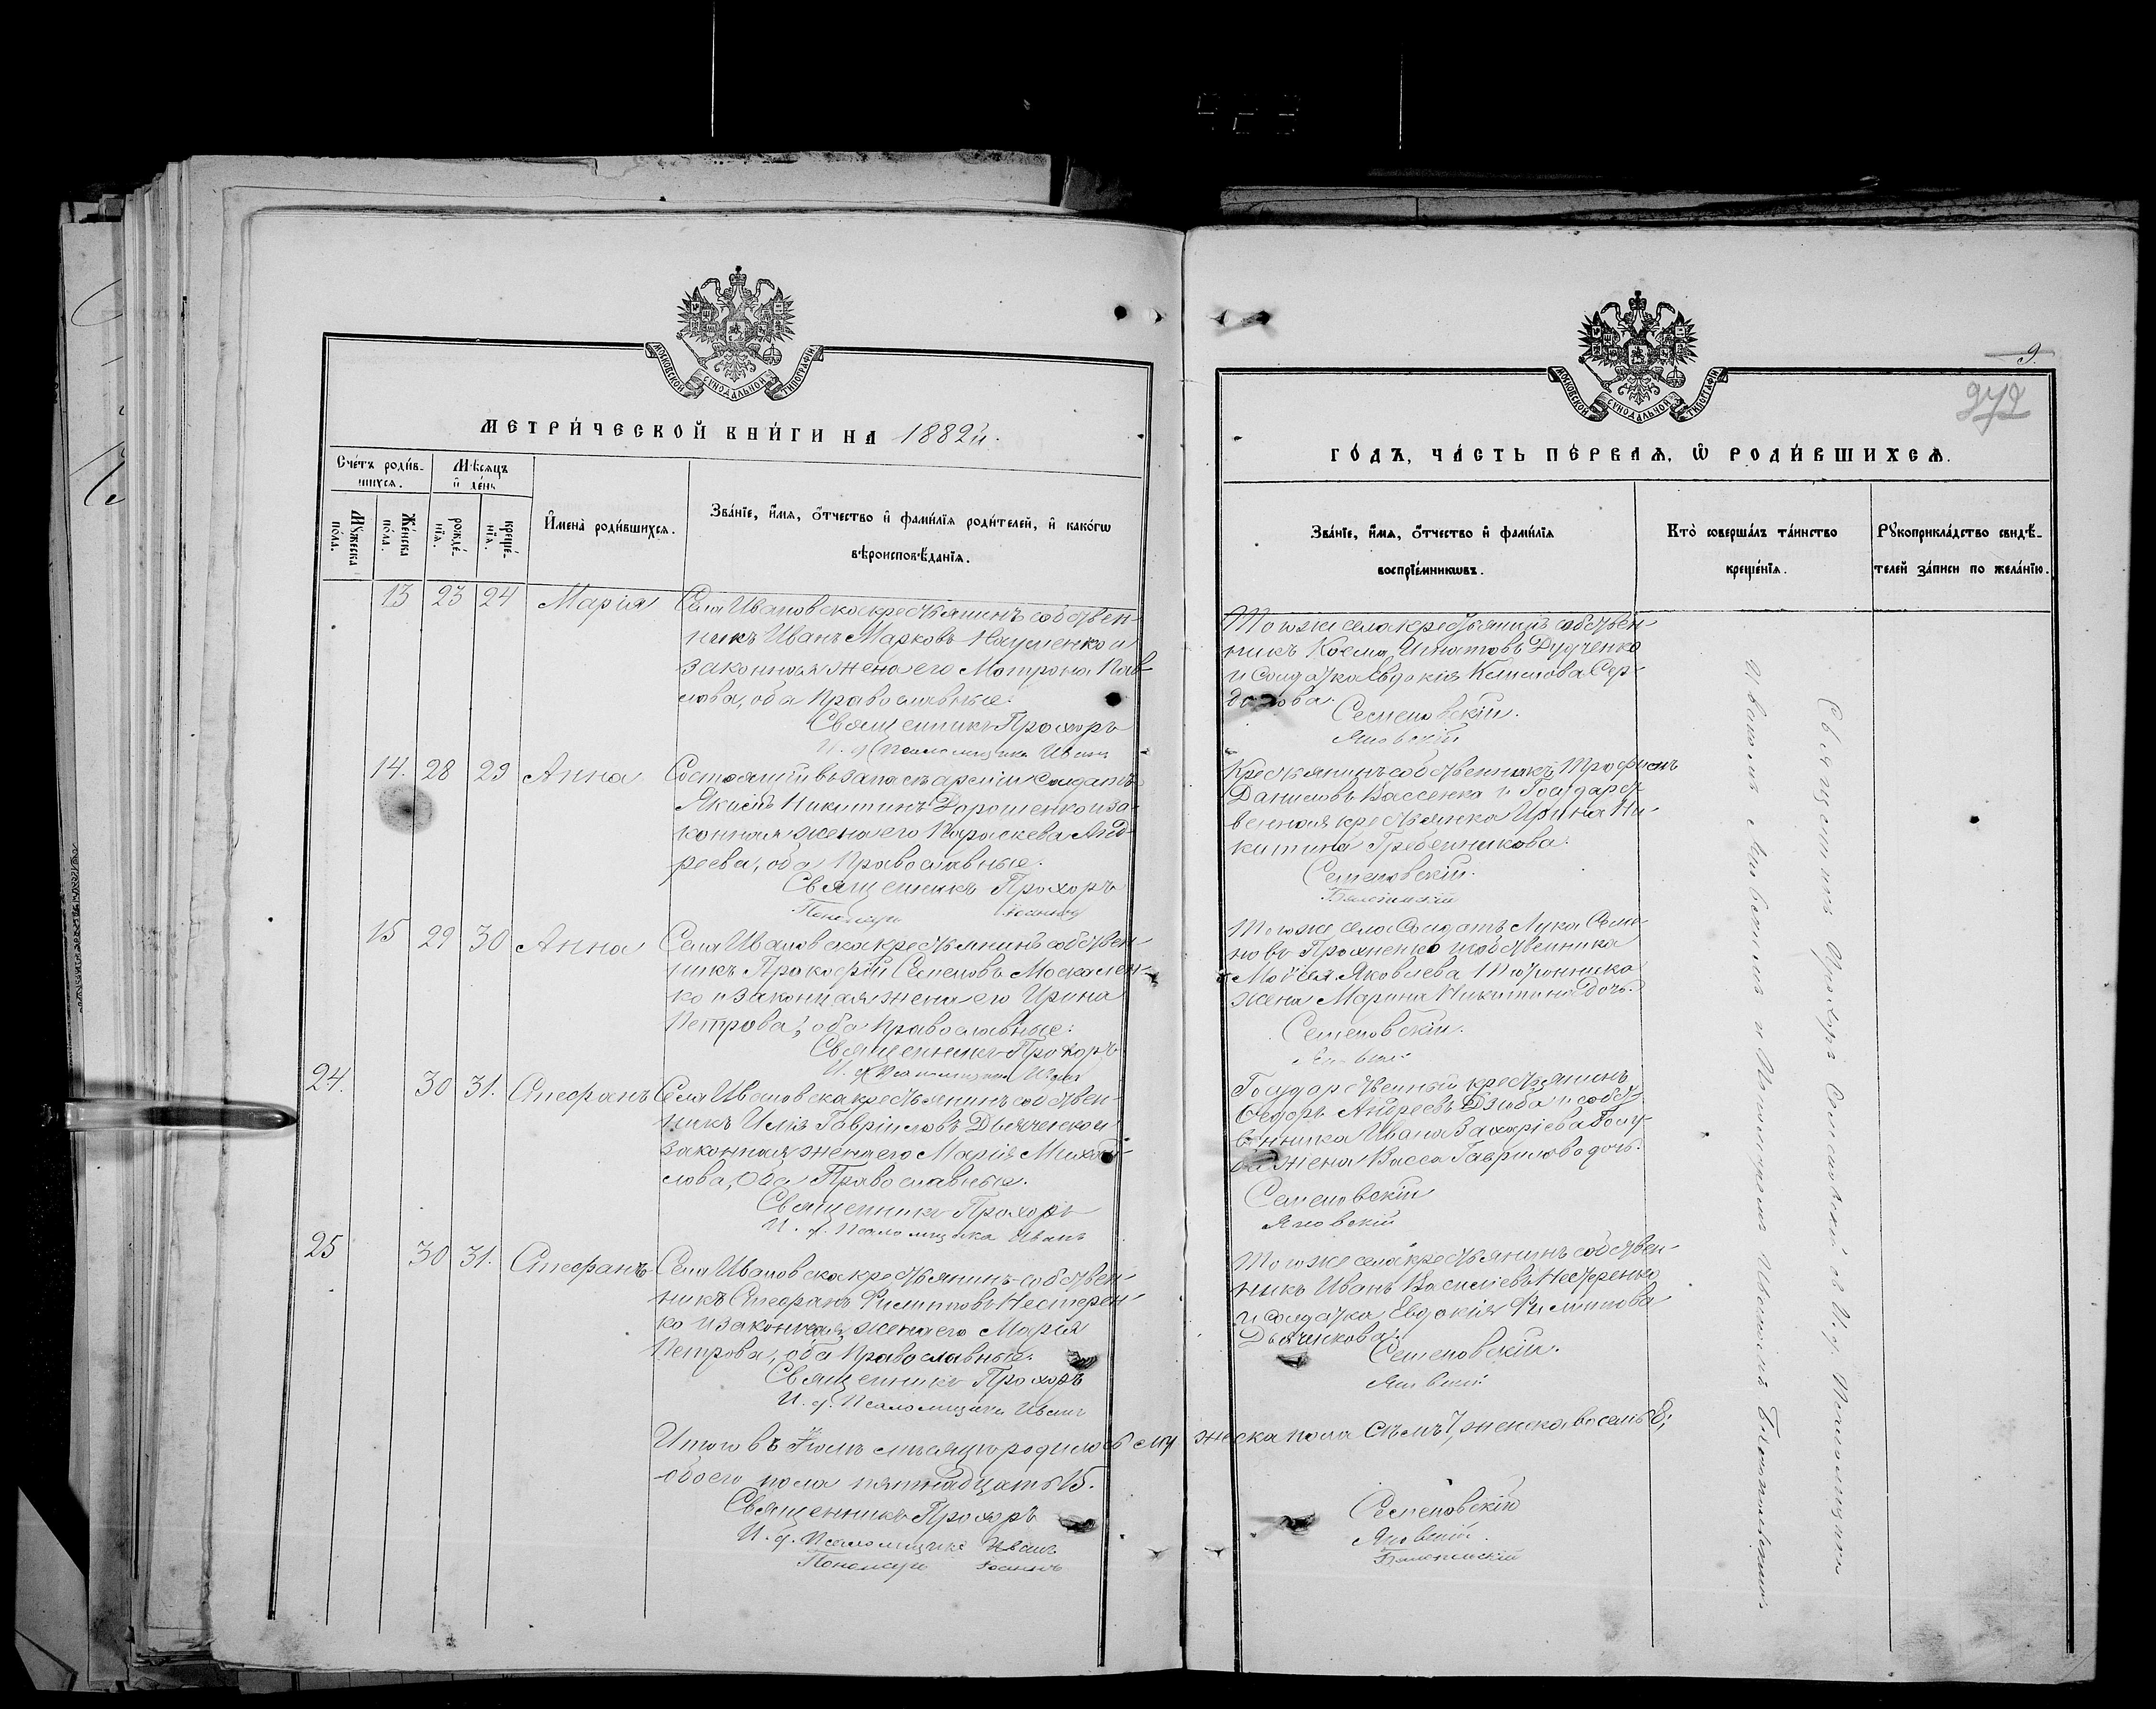 МОСКОВСКОЙ СѴНОДАЛЬНОЙ ТИПОГРАФІИ
МЕТРИ́ЧЕСКОЙ КНИ́ГИ НА 1882й.
Сче́тъ роди́вшихся.
Мѣ́сяцъ и҆ де́нь
Мꙋ́жеска по́ла.
Же́нска по́ла.
рожде́нїѧ.
креще́нїѧ.
И҆мена̀ роди́вшихсѧ.
Зва́нїе, и҆́мѧ, ѻ҆́тчество и҆ фами́лїѧ роди́телей, и҆ како́гѡ
вѣроисповѣ́данїѧ.
13 23 24 Марія Села Ивановска крестьянинъ собствен-
никъ Иванъ Марковъ Науменко и
законная жена его Матрона Пав-
лова, оба Православные.
Священникъ Прохоръ
И. д. Псаломщика Иванъ
14. 28 29 Анна Состоящій въ запасѣ арміи Солдатъ
Якимъ Никитинъ Дорошенко и за-
конная жена его Параскева Анд-
реева, оба Православные.
Священникъ Прохоръ
Пономарь Іоаннъ
15 29 30 Анна Села Ивановска крестьянинъ собствен-
никъ Прокофій Семеновъ Москален-
ко и законная жена его Ирина
Петрова, оба Православные.
Священникъ Прохоръ
И. д. Псаломщика Иванъ
24. 30 31. Стефанъ Села Ивановска крестьянинъ собствен-
никъ Илія Гавріиловъ Дьяченко и
законная жена его Марія Михай-
лова, Оба Православные.
Священникъ Прохоръ
И. д. Псаломщика Иванъ
25 30 31. Стефанъ Села Ивановска крестьянинъ собствен-
никъ Стефанъ Филипповъ Нестерен-
ко и законная жена его Марія
Петрова, оба Православные.
Священникъ Прохоръ
И. д. Псаломщика Иванъ
Итого въ мѣсяцѣ родилось му жеска пола Семь 7, женска восемь 8;
обоего пола пятнадцать 15.
Священникъ Прохоръ
И. д. Псаломщика Иванъ
Пономарь Іоаннъ
9.
972
МОСКОВСКОЙ СѴНОДАЛЬНОЙ ТИПОГРАФІИ
ГО́ДЪ, ЧА́СТЬ ПЕ́РВАѦ, Ѡ҆ РОДИ́ВШИХСѦ.
Зва́нїе, и҆́мѧ, ѻ҆́тчество и҆ фами́лїѧ
воспрїе́мникѡвъ.
Кто̀ соверша́лъ та́инство
креще́нїѧ.
Рꙋкоприкла́дство свидѣ́-
телей за́писи по жела́нїю.
Того же села крестьянинъ собствен-
никъ Косма Игнатовъ Дудченко
и Солдатка Евдокія
Семеновскій.
Яновскій
Крестьянинъ собственникъ Трофимъ
Даниловъ Вассенко и Государст-
венная крестьянка Ирина Ни-
китина Гребенникова.
Семеновскій.
Того же села Солдатъ Лука Семе-
новъ и собственника
Яковлева
жена Марина Никитина дочь.
Семеновскій.
Государственный крестьянинъ
Ѳедоръ Андреевъ Дзюба и собст-
венника Ивана Захаріева Голу-
жена Васса Гаврилова дочь.
Семеновскій
Яновскій
Того же села крестьянинъ собствен-
никъ Иванъ Василіевъ Нестеренко
и солдатка Евдокія Филиппова
Дьяченкова.
Семеновскій.
Яновскій
Семеновскій
Яновскій.
Священникъ Прохоръ Семеновскій съ И. д. Псаломщика
Иваномъ Яновскимъ и Пономаремъ